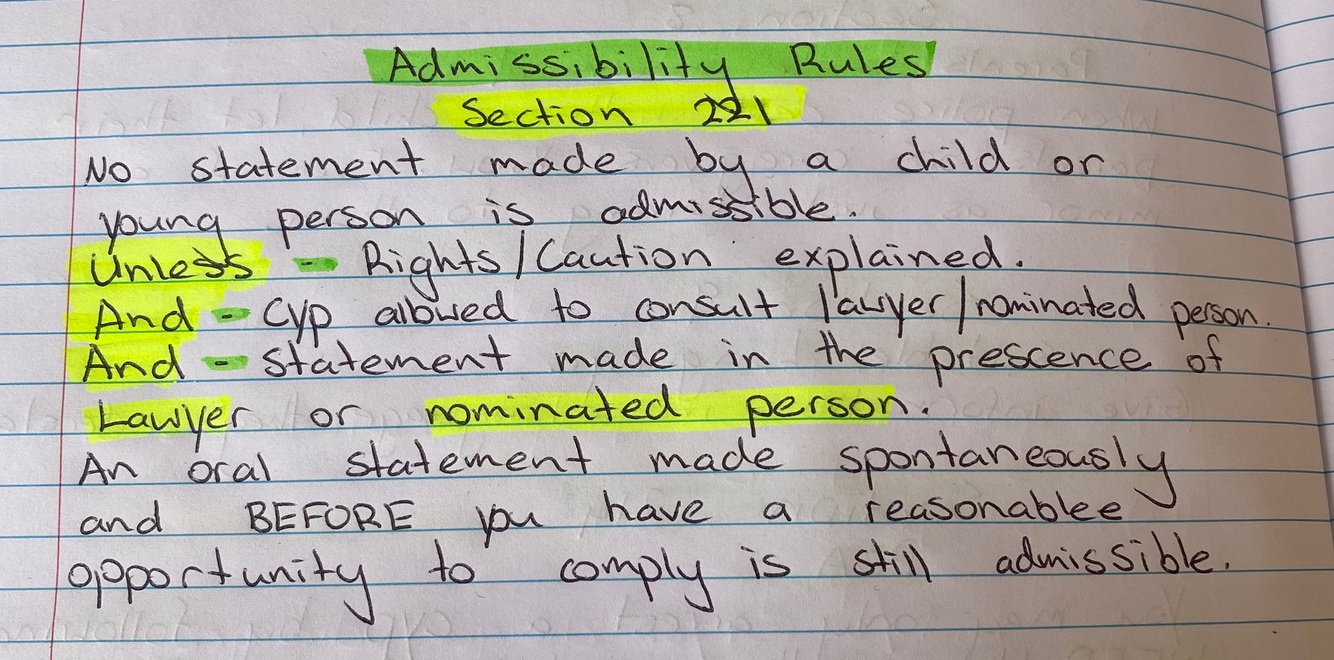 Admissibility Rules
Section 221
No statement made by a child or
young person is admissible.
Unless - Rights/Caution explained.
And - CYP allowed to consult lawyer/nominated person.
And - Statement made in the prescence of
Lawyer or nominated person.
An oral statement made spontaneously
and BEFORE you have a reasonablee
opportunity to comply is still admissible.